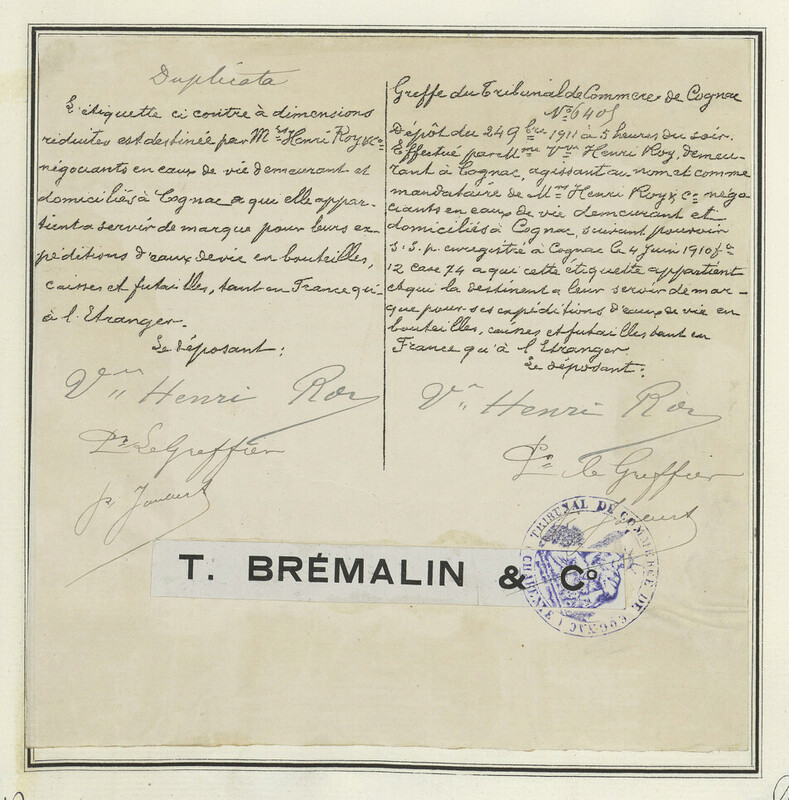 Duplicata
L'étiquette ci contre à dimensions
réduites est destinée par Mrs Henri Roy & Co
négociants en eaux de vie demeurant et
domiciliés à Cognac a qui elle appar-
tient a servir de marque pour leurs ex-
péditions d'eaux de vie en bouteilles,
caisses et futailles, tant en France qu'-
à l'Etranger.
Le déposant:
Vve Henri Roy
Pr Le Greffier
Greffe du Tribunal de Commerce de Cognac
No 6405
Dépôt du 24 9bre 1911 à 5 heures du soir.
Effectué par Mme Vve Henri Roy, demeu-
rant à Cognac, agissant au nom et comme
mandataire de Mrs Henri Roy & Co négo-
ciants en eaux de vie demeurant et
domiciliés à Cognac, suivant pouvoir
S.S.p. enregistré à Cognac le 4 Juin 1910 fo
12 case 74 a qui cette étiquette appartient
et qui la destinent a leur servir de mar-
que pour ses expéditions d'eaux de vie en
bouteilles, caisses et futailles tant en
France qu'à l'Etranger.
Le déposant:
Vve Henri Roy
Pr le Greffier
T. BRÉMALIN & Co
TRIBUNAL DE COMMERCE DE COGNAC (CHARENTE)